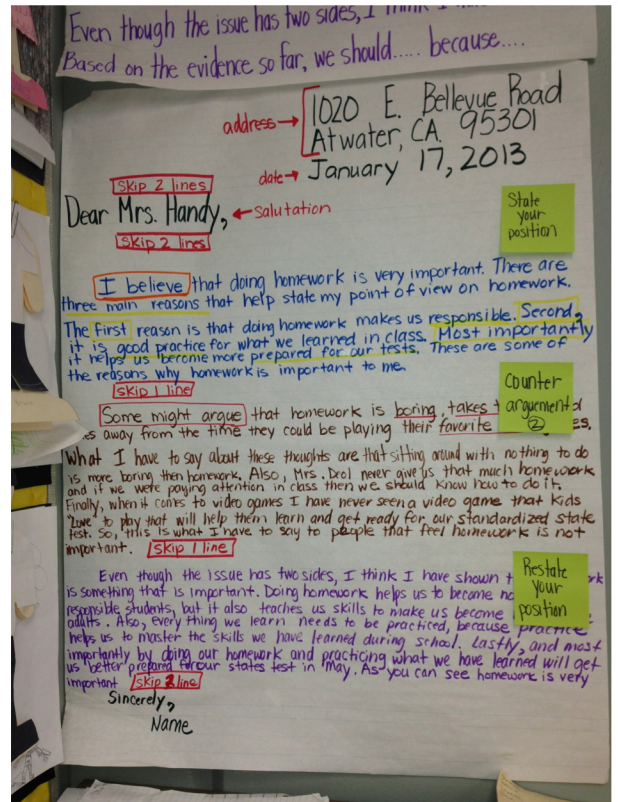 Even though the issue has two sides, I think I
Based on the evidence so far, we should..... because....
address → 1020 E. Bellevue Road
Atwater, CA 95301
date → January 17, 2013
skip 2 lines
Dear Mrs. Handy, ← Salutation
skip 2 lines
State
your
position
I believe that doing homework is very important. There are
three main reasons that help state my point of view on homework.
The first reason is that doing homework makes us responsible. Second,
it is good practice for what we learned in class. Most importantly
it helps us become more prepared for our tests. These are some of
the reasons why homework is important to me.
skip 1 line
Counter
arguement
②
Some might argue that homework is boring, takes
away from the time they could be playing their favorite
What I have to say about these thoughts are that sitting around with nothing to do
is more boring then homework. Also, Mrs. Drol never give us that much homework
and if we were paying attention in class then we should know how to do it.
Finally, when it comes to video games I have never seen a video game that kids
"Love" to play that will help them learn and get ready for our standardized state
test. So, this is what I have to say to people that feel homework is not
important. skip 1 line
Restate
your
position
Even though the issue has two sides, I think I have shown
is something that is important. Doing homework helps us to become
responsible students, but it also teaches us skills to make us become
adults. Also, every thing we learn needs to be practiced, because practice
helps us to master the skills we have learned during school. Lastly, and most
importantly by doing our homework and practicing what we have learned will get
us better prepared for our states test in May. As you can see homework is very
important skip 2 line
Sincerely,
Name